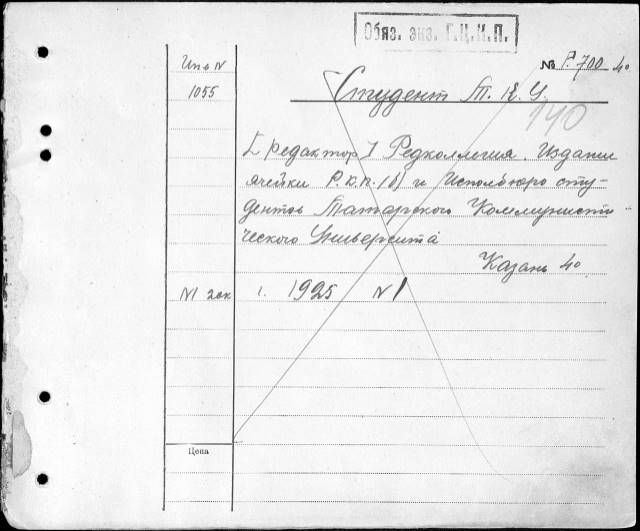 Обяз. экз. Г.Ц.К.П.
№ Р.700 4°
Инв N
1055
Студент Т. К. У.
140
[редактор] Редколлегия. Издание
ячейки Р.К.П.(б) и Исполбюро сту-
дентов Татарского Коммунисти-
ческого Университа
Казань 4°
N1 2 эк
г. 1925 N1
Цена